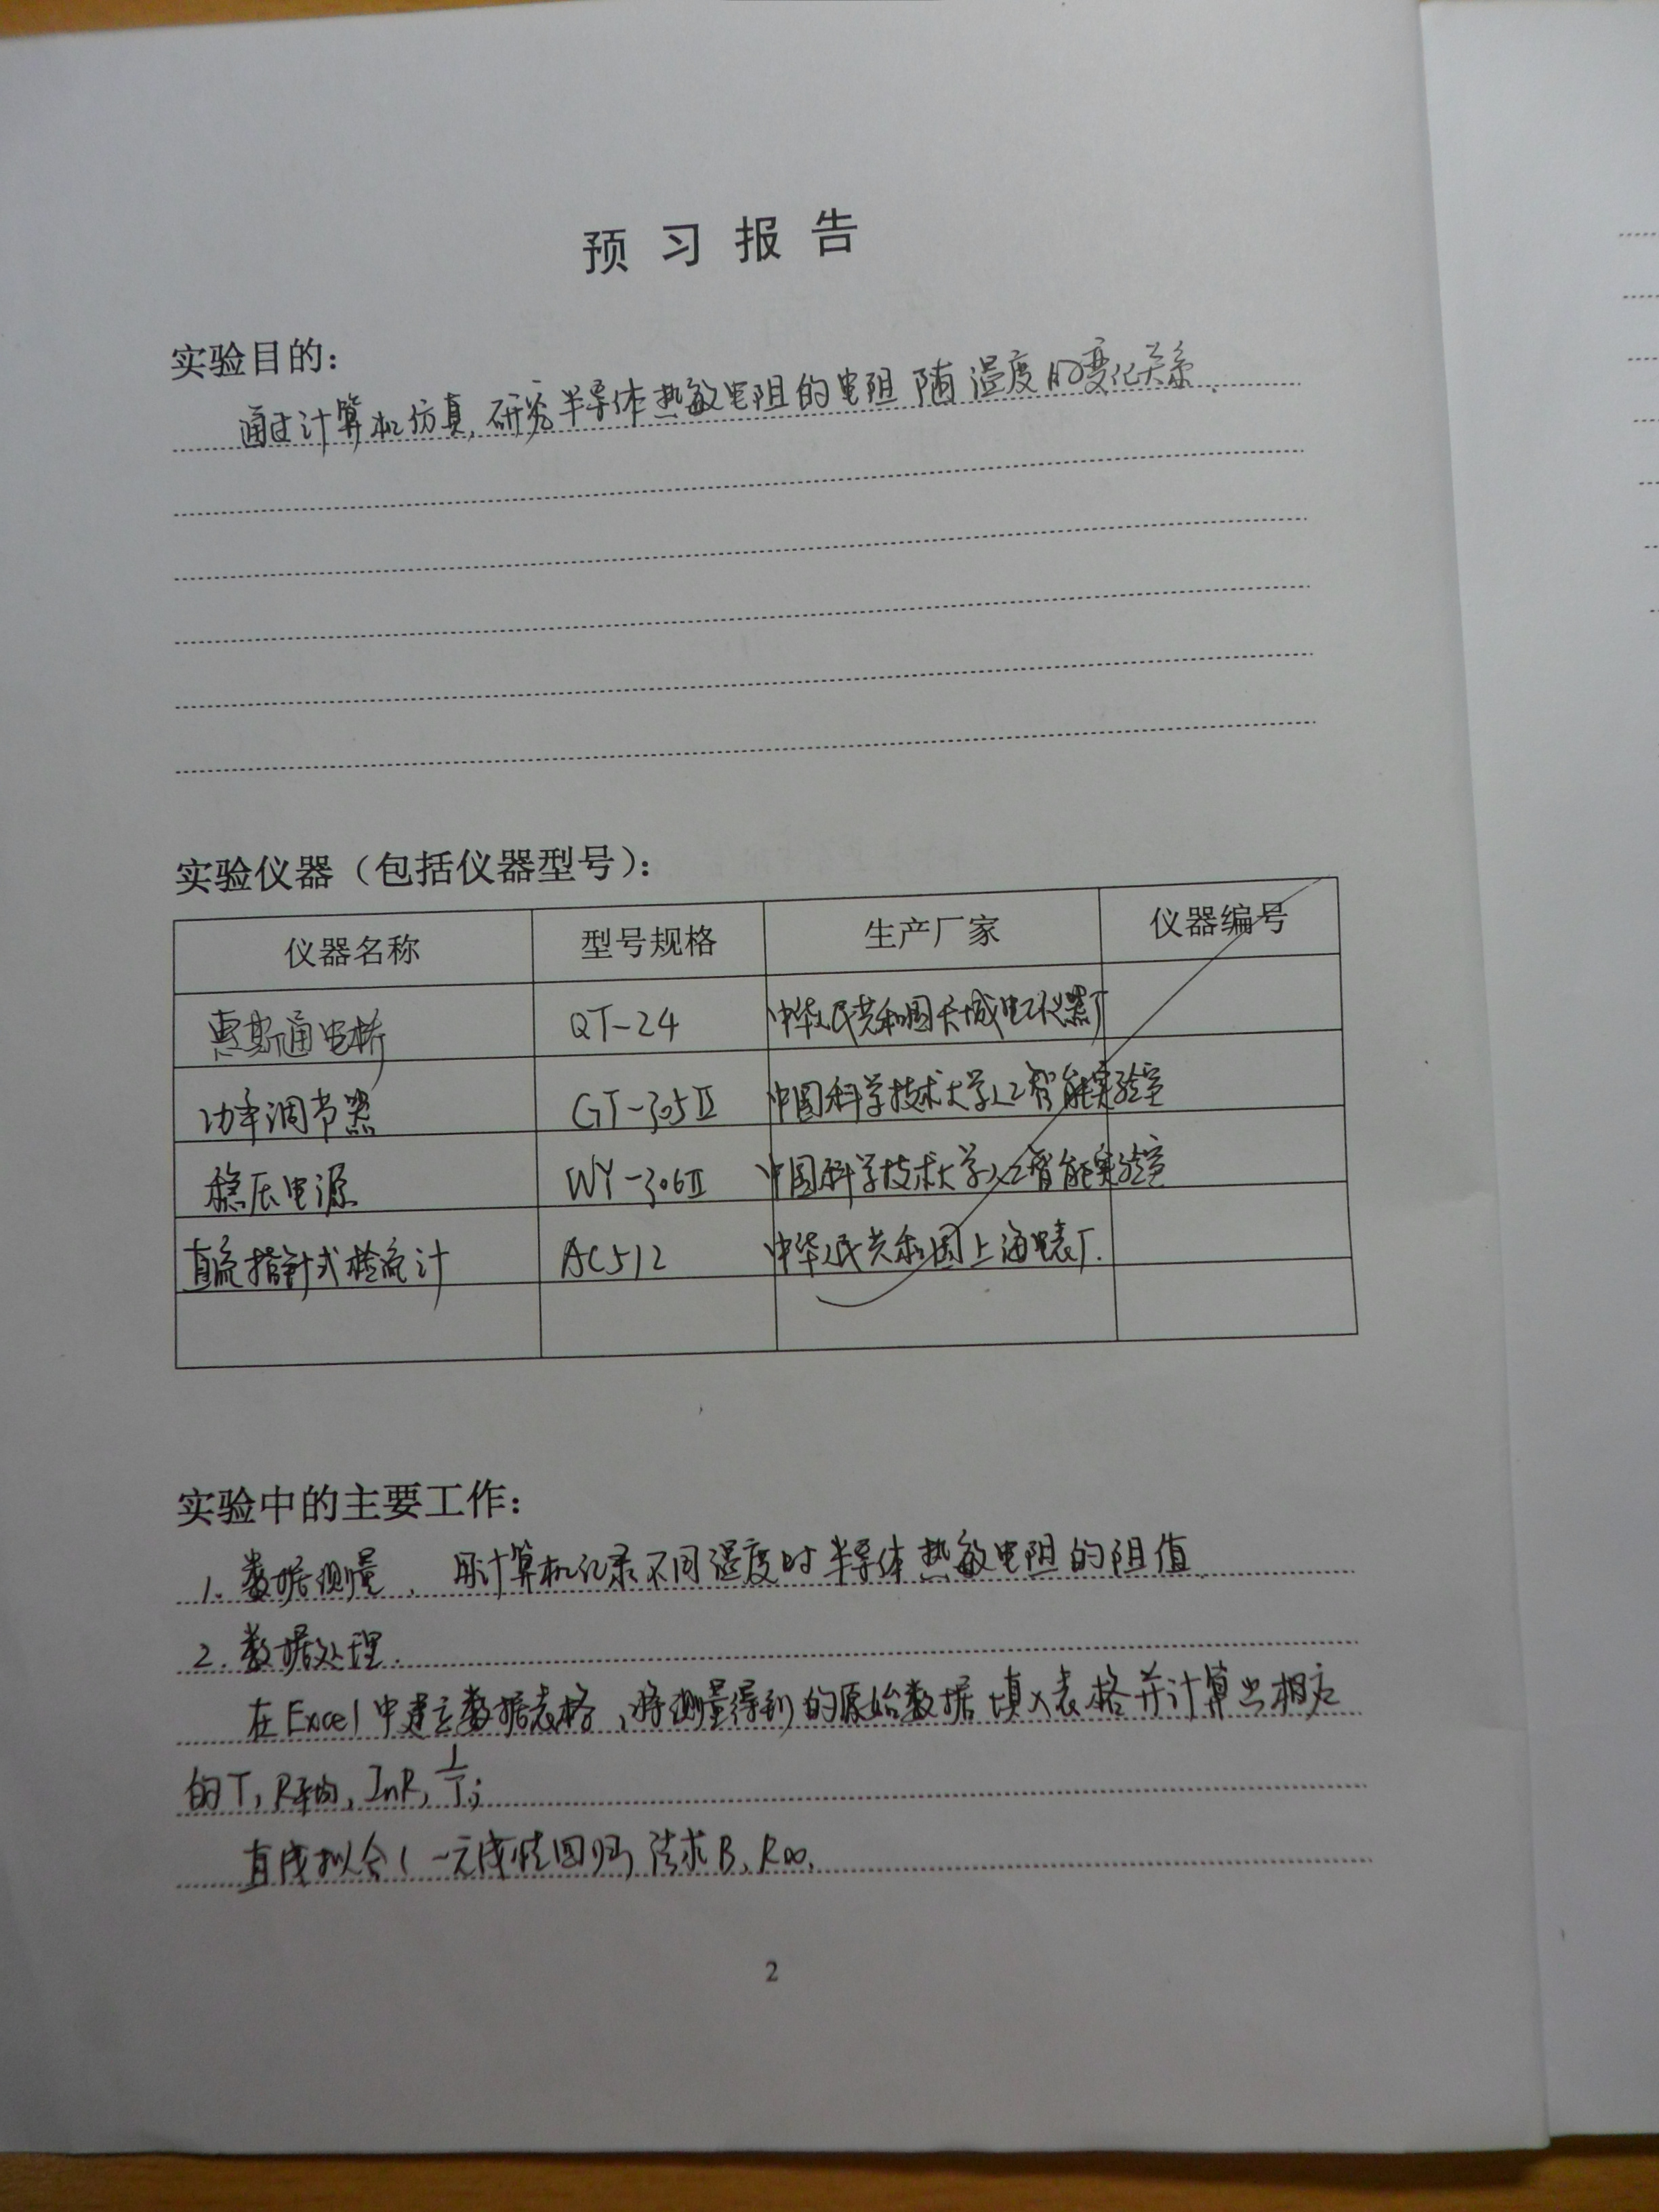 预习报告
实验目的：
通过计算机仿真，研究半导体热敏电阻的电阻随温度的变化关系.
实验仪器（包括仪器型号）：
仪器名称 型号规格 生产厂家 仪器编号
惠斯通电桥 QT-24 中华人民共和国长城电工仪器厂
功率调节器 GT-305Ⅱ 中国科学技术大学人工智能实验室
稳压电源 WY-306Ⅱ 中国科学技术大学人工智能实验室
直流指针式检流计 AC512 中华人民共和国上海电表厂.
实验中的主要工作：
1. 数据测量. 用计算机记录不同温度时半导体热敏电阻的阻值.
2. 数据处理.
在Excel中建立数据表格，将测量得到的原始数据填入表格并计算出相应
的T, R平均, InR, 1/T;
直线拟合（一元线性回归）法求B, R∞.
2